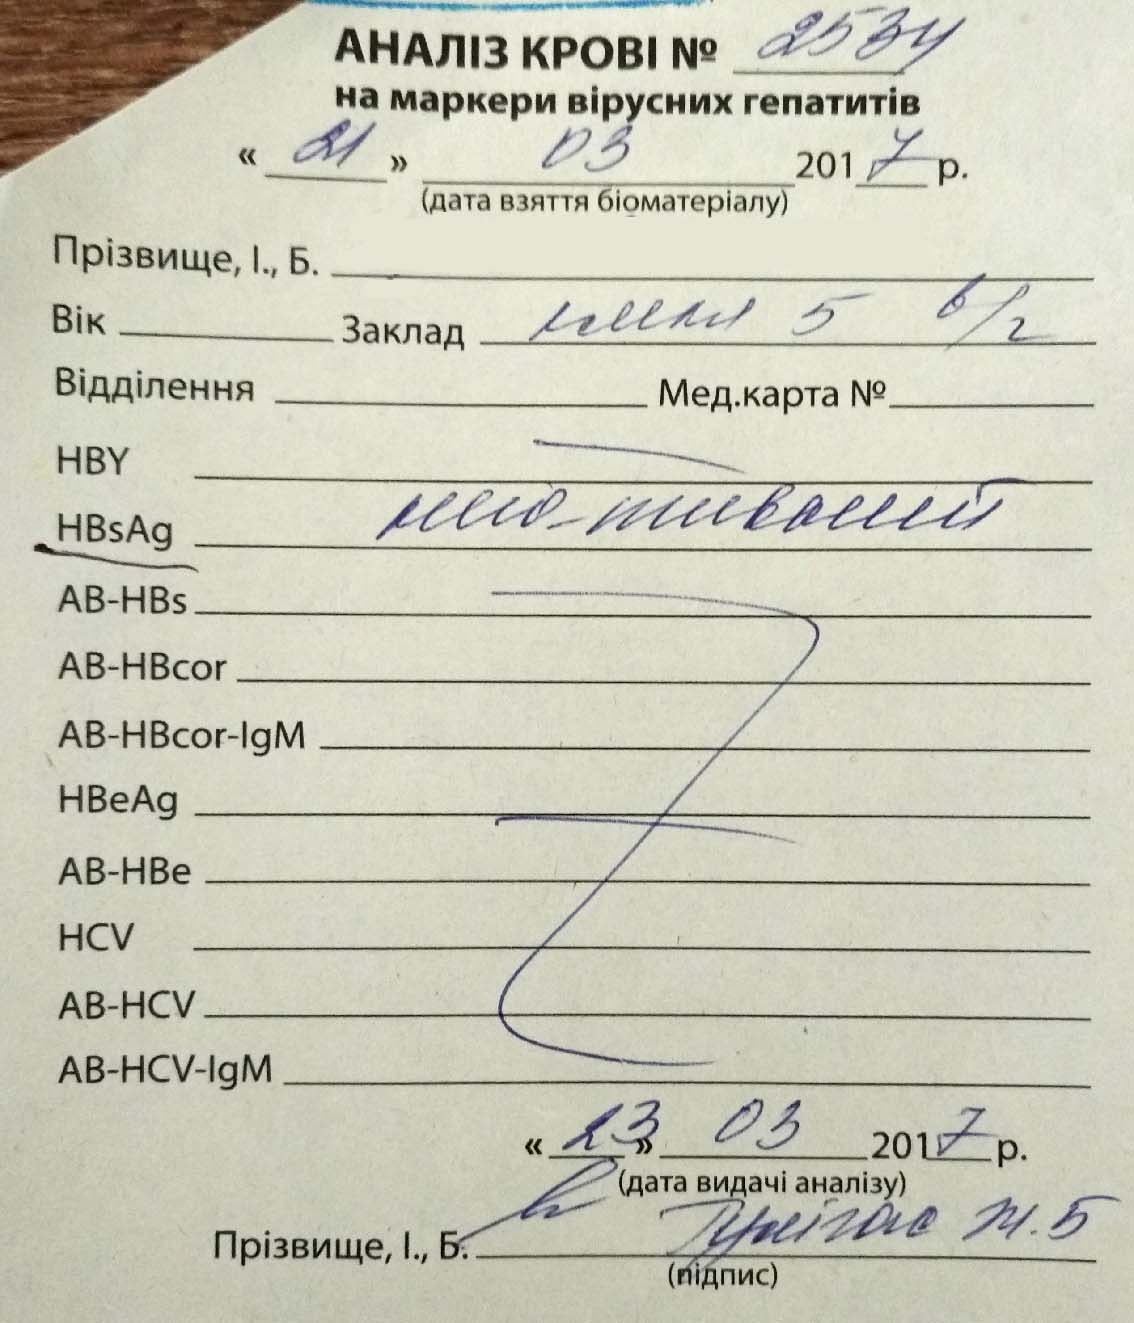 АНАЛІЗ КРОВІ № 2534
на маркери вірусних гепатитів
« 21 » 03 2017 р.
(дата взяття біоматеріалу)
Прізвище, І., Б.
Вік Заклад 5 в/г
Відділення Мед.карта №
HBY
HBsAg
AB-HBs
AB-HBcor
AB-HBcor-IgM
HBeAg
AB-HBe
HCV
AB-HCV
AB-HCV-IgM
« 23 » 03 2017 р.
(дата видачі аналізу)
Прізвище, І., Б. Ж.Б
(підпис)